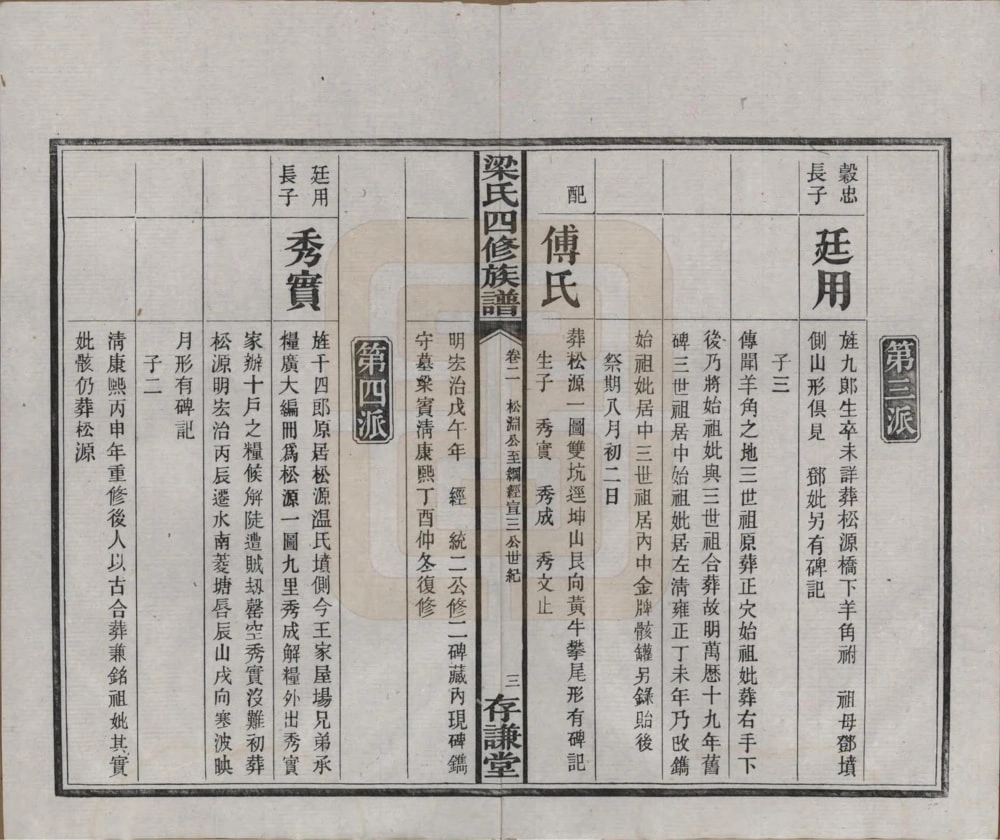 第三派
穀忠
長子
廷用
旌九郎生卒未詳葬松源橋下羊角祔 祖母鄧墳
側山形俱見 鄧妣另有碑記
子三
傳聞羊角之地三世祖原葬正穴始祖妣葬右手下
後乃將始祖妣與三世祖合葬故明萬曆十九年舊
碑三世祖居中始祖妣居左淸雍正丁未年乃改鐫
始祖妣居中三世祖居內中金牌骸罐另錄貽後
祭期八月初二日
配
傅氏
葬松源一圖雙坑逕坤山艮向黃牛攀尾形有碑記
生子 秀實 秀成 秀文止
梁氏四修族譜
卷二 松淵公至綱經宣三公世紀
三
存謙堂
明宏治戊午年 經 統二公修二碑藏內現碑鐫
守墓衆賓淸康熙丁酉仲冬復修
第四派
廷用
長子
秀實
旌千四郎原居松源温氏墳側今王家屋場兄弟承
糧廣大編冊爲松源一圖九里秀成解糧外出秀實
家辦十戶之糧候解陡遭賊刼罄空秀實沒難初葬
松源明宏治丙辰遷水南菱塘唇辰山戌向寒波映
月形有碑記
子二
淸康熙丙申年重修後人以古合葬兼銘祖妣其實
妣骸仍葬松源